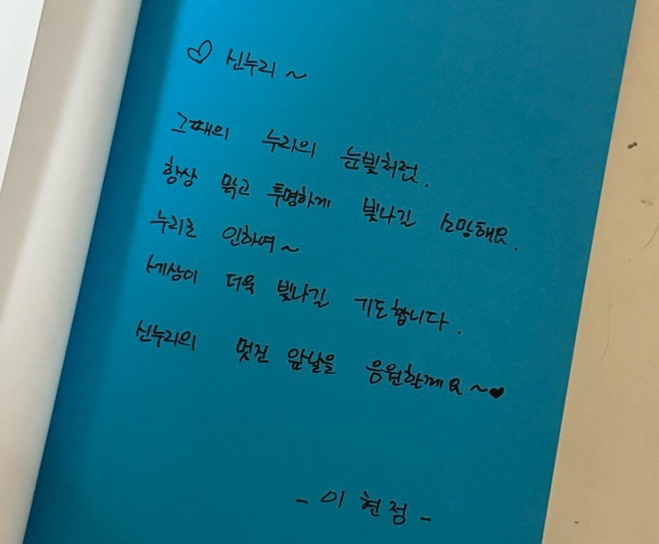 ♡ 신누리 ~
그때의 누리의 눈빛처럼.
항상 맑고 투명하게 빛나길 소망해요.
누리로 인하여~
세상이 더욱 빛나길 기도합니다.
신누리의 멋진 앞날을 응원할게요~♥
- 이현정 -